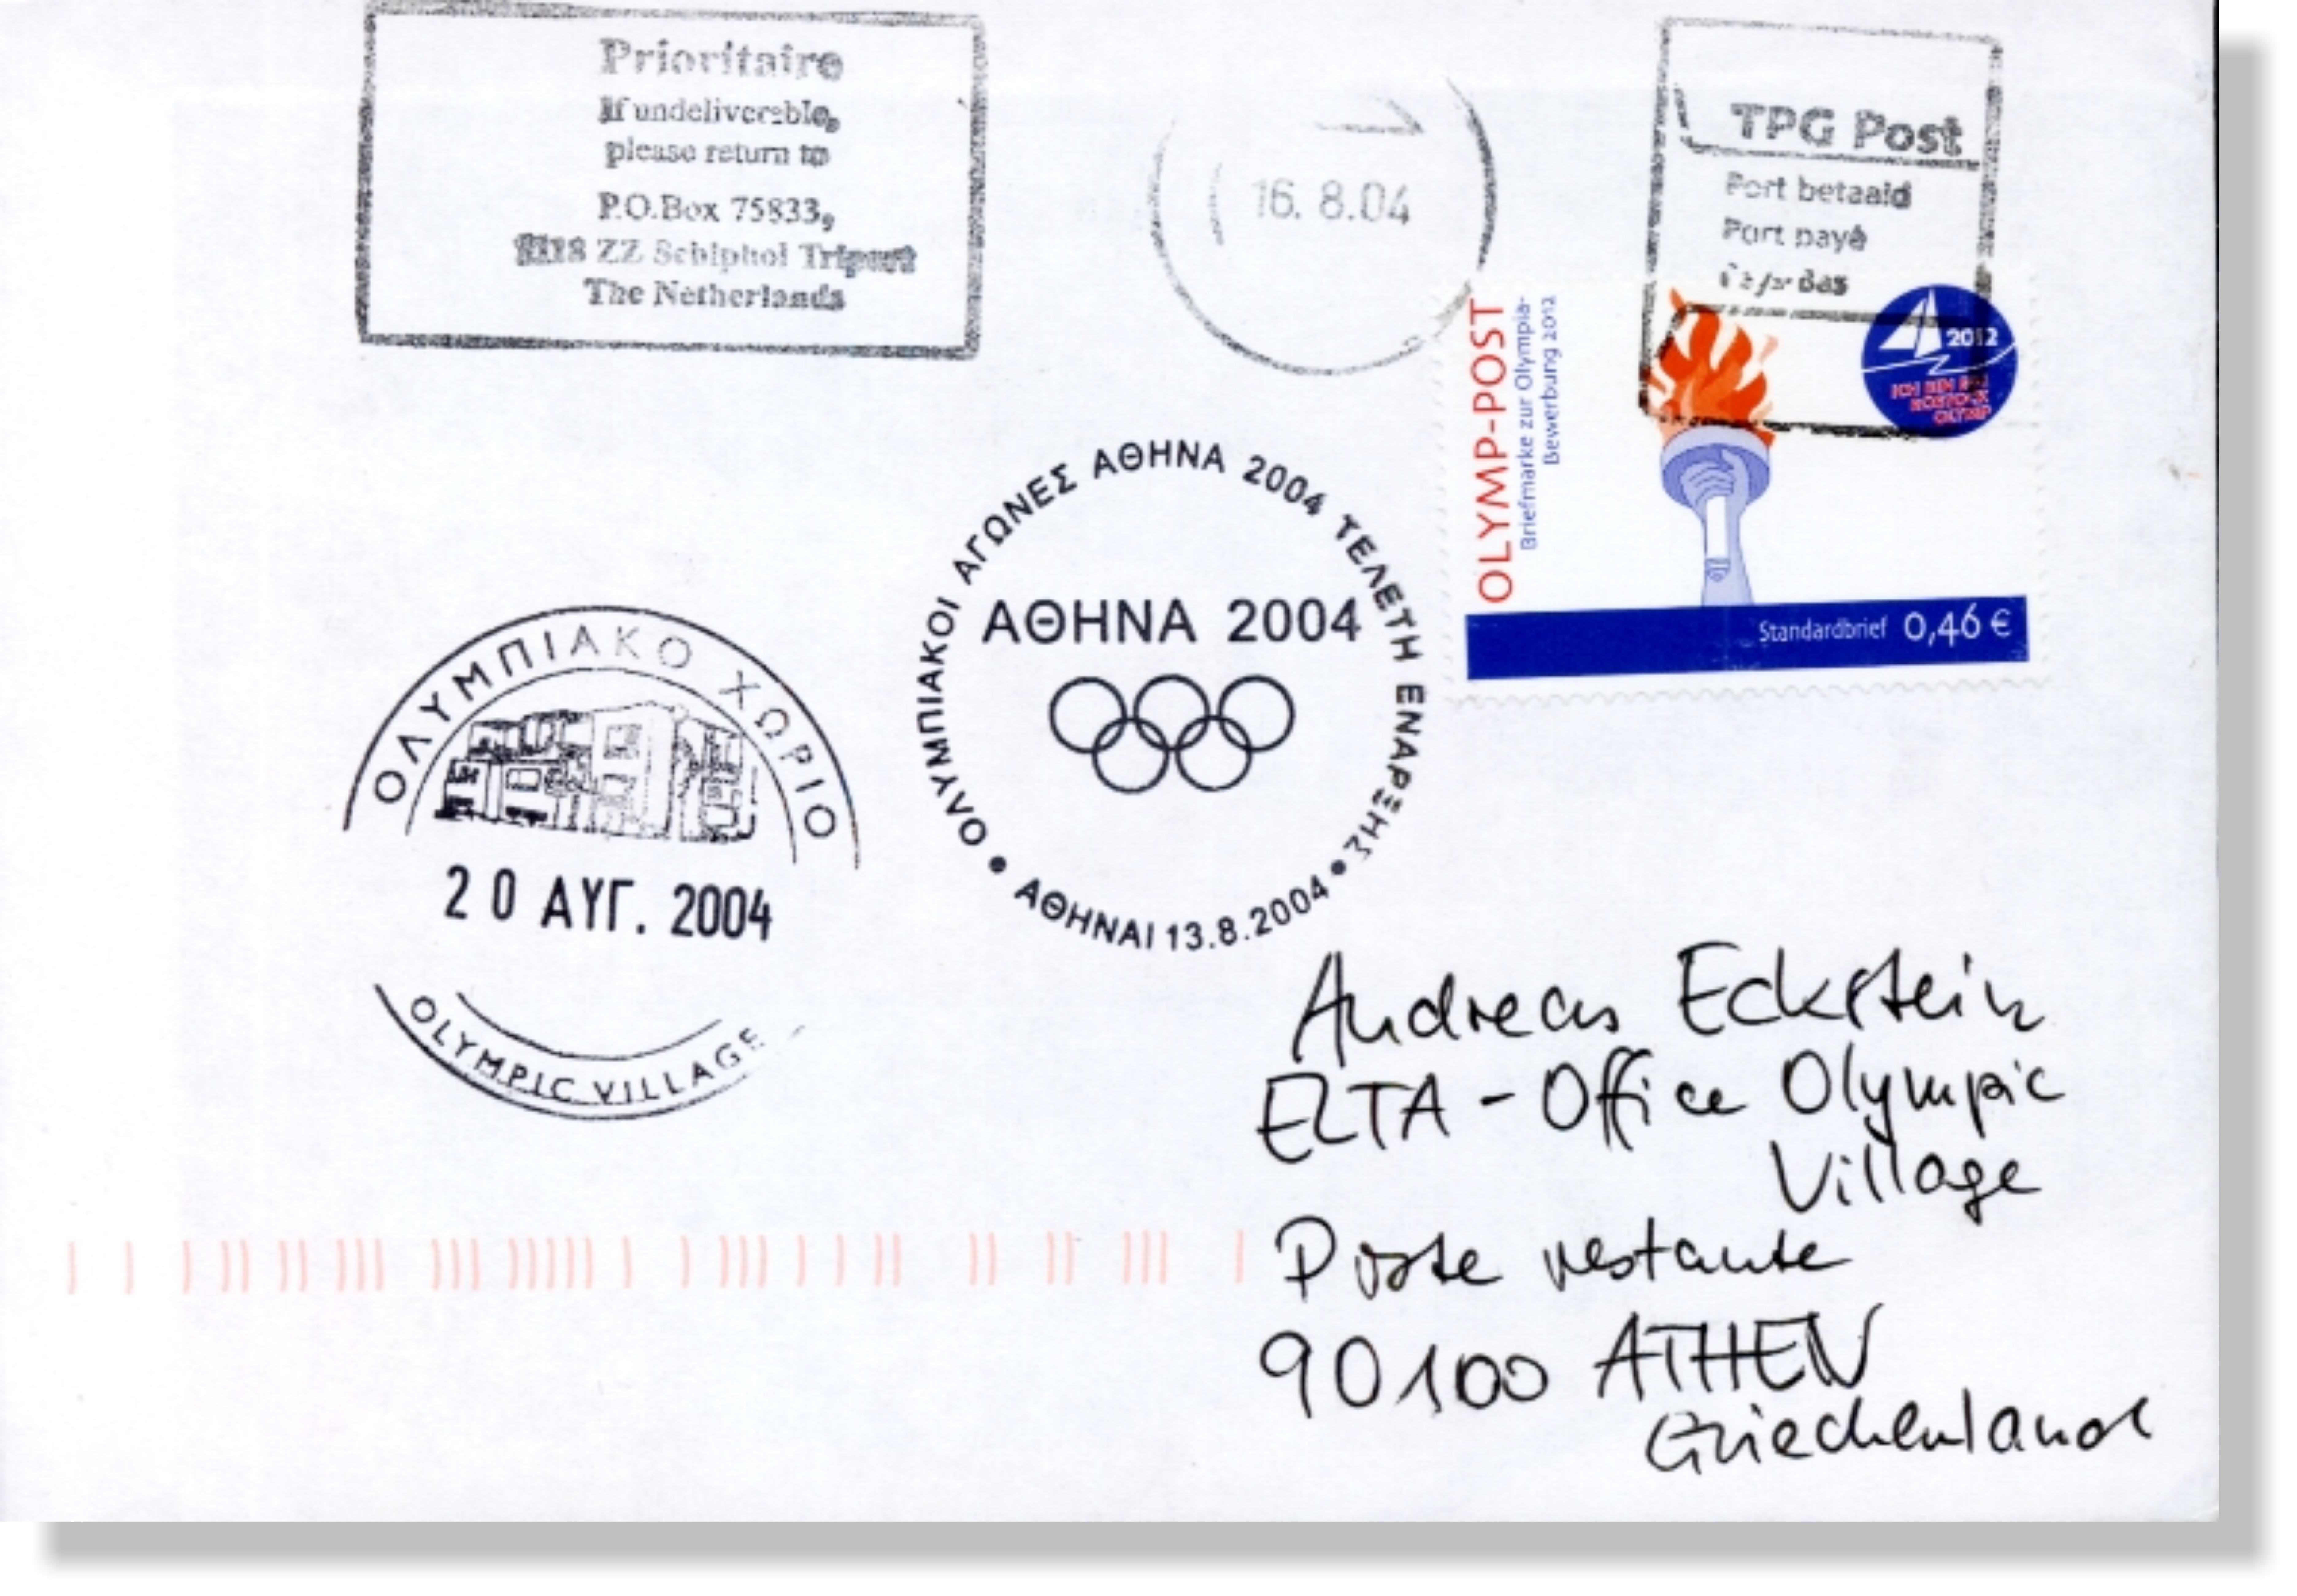 Prioritaire
If undeliverable,
please return to
P.O.Box 75833,
1118 ZZ Schiphol Triport
The Netherlands
16. 8.04
TPG Post
Port betaald
Port payé
OLYMP-POST
Briefmarke zur Olympia-
Bewerbung 2012
2012
ICH BIN EIN
ROSTOCK
OLYMP
Standardbrief 0,46 €
ΟΛΥΜΠΙΑΚΟΙ ΑΓΩΝΕΣ ΑΘΗΝΑ 2004 ΤΕΛΕΤΗ ΕΝΑΡΞΗΣ
ΑΘΗΝΑ 2004
• ΑΘΗΝΑΙ 13.8.2004 •
ΟΛΥΜΠΙΑΚΟ ΧΩΡΙΟ
20 ΑΥΓ. 2004
OLYMPIC VILLAGE
Andreas Eckstein
ELTA - Office Olympic
Village
Poste restante
90100 ATHEN
Griechenland